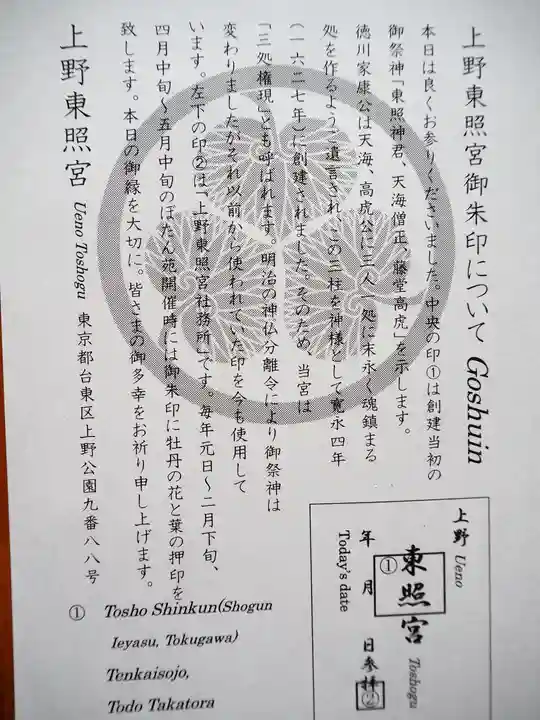 上野東照宮御朱印について Goshuin
本日は良くお参りくださいました。中央の印①は創建当初の
御祭神「東照神君、天海僧正、藤堂高虎」を示します。
徳川家康公は天海、高虎公に三人一処に末永く魂鎮まる
処を作るようご遺言され、この三柱を神様として寛永四年
(一六二七年)に創建されました。そのため、当宮は
「三処権現」とも呼ばれます。明治の神仏分離令により御祭神は
変わりましたがそれ以前から使われていた印を今も使用して
います。左下の印②は「上野東照宮社務所」です。毎年元日～二月下旬、
四月中旬～五月中旬のぼたん苑開催時には御朱印に牡丹の花と葉の押印を
致します。本日の御縁を大切に。皆さまの御多幸をお祈り申し上げます。
上野東照宮 Ueno Toshogu 東京都台東区上野公園九番八八号
上野 Ueno
①
東照宮 Toshogu
年 月 日参拝
②
Today's date
① Tosho Shinkun(Shogun
Ieyasu, Tokugawa)
Tenkaisojo,
Todo Takatora